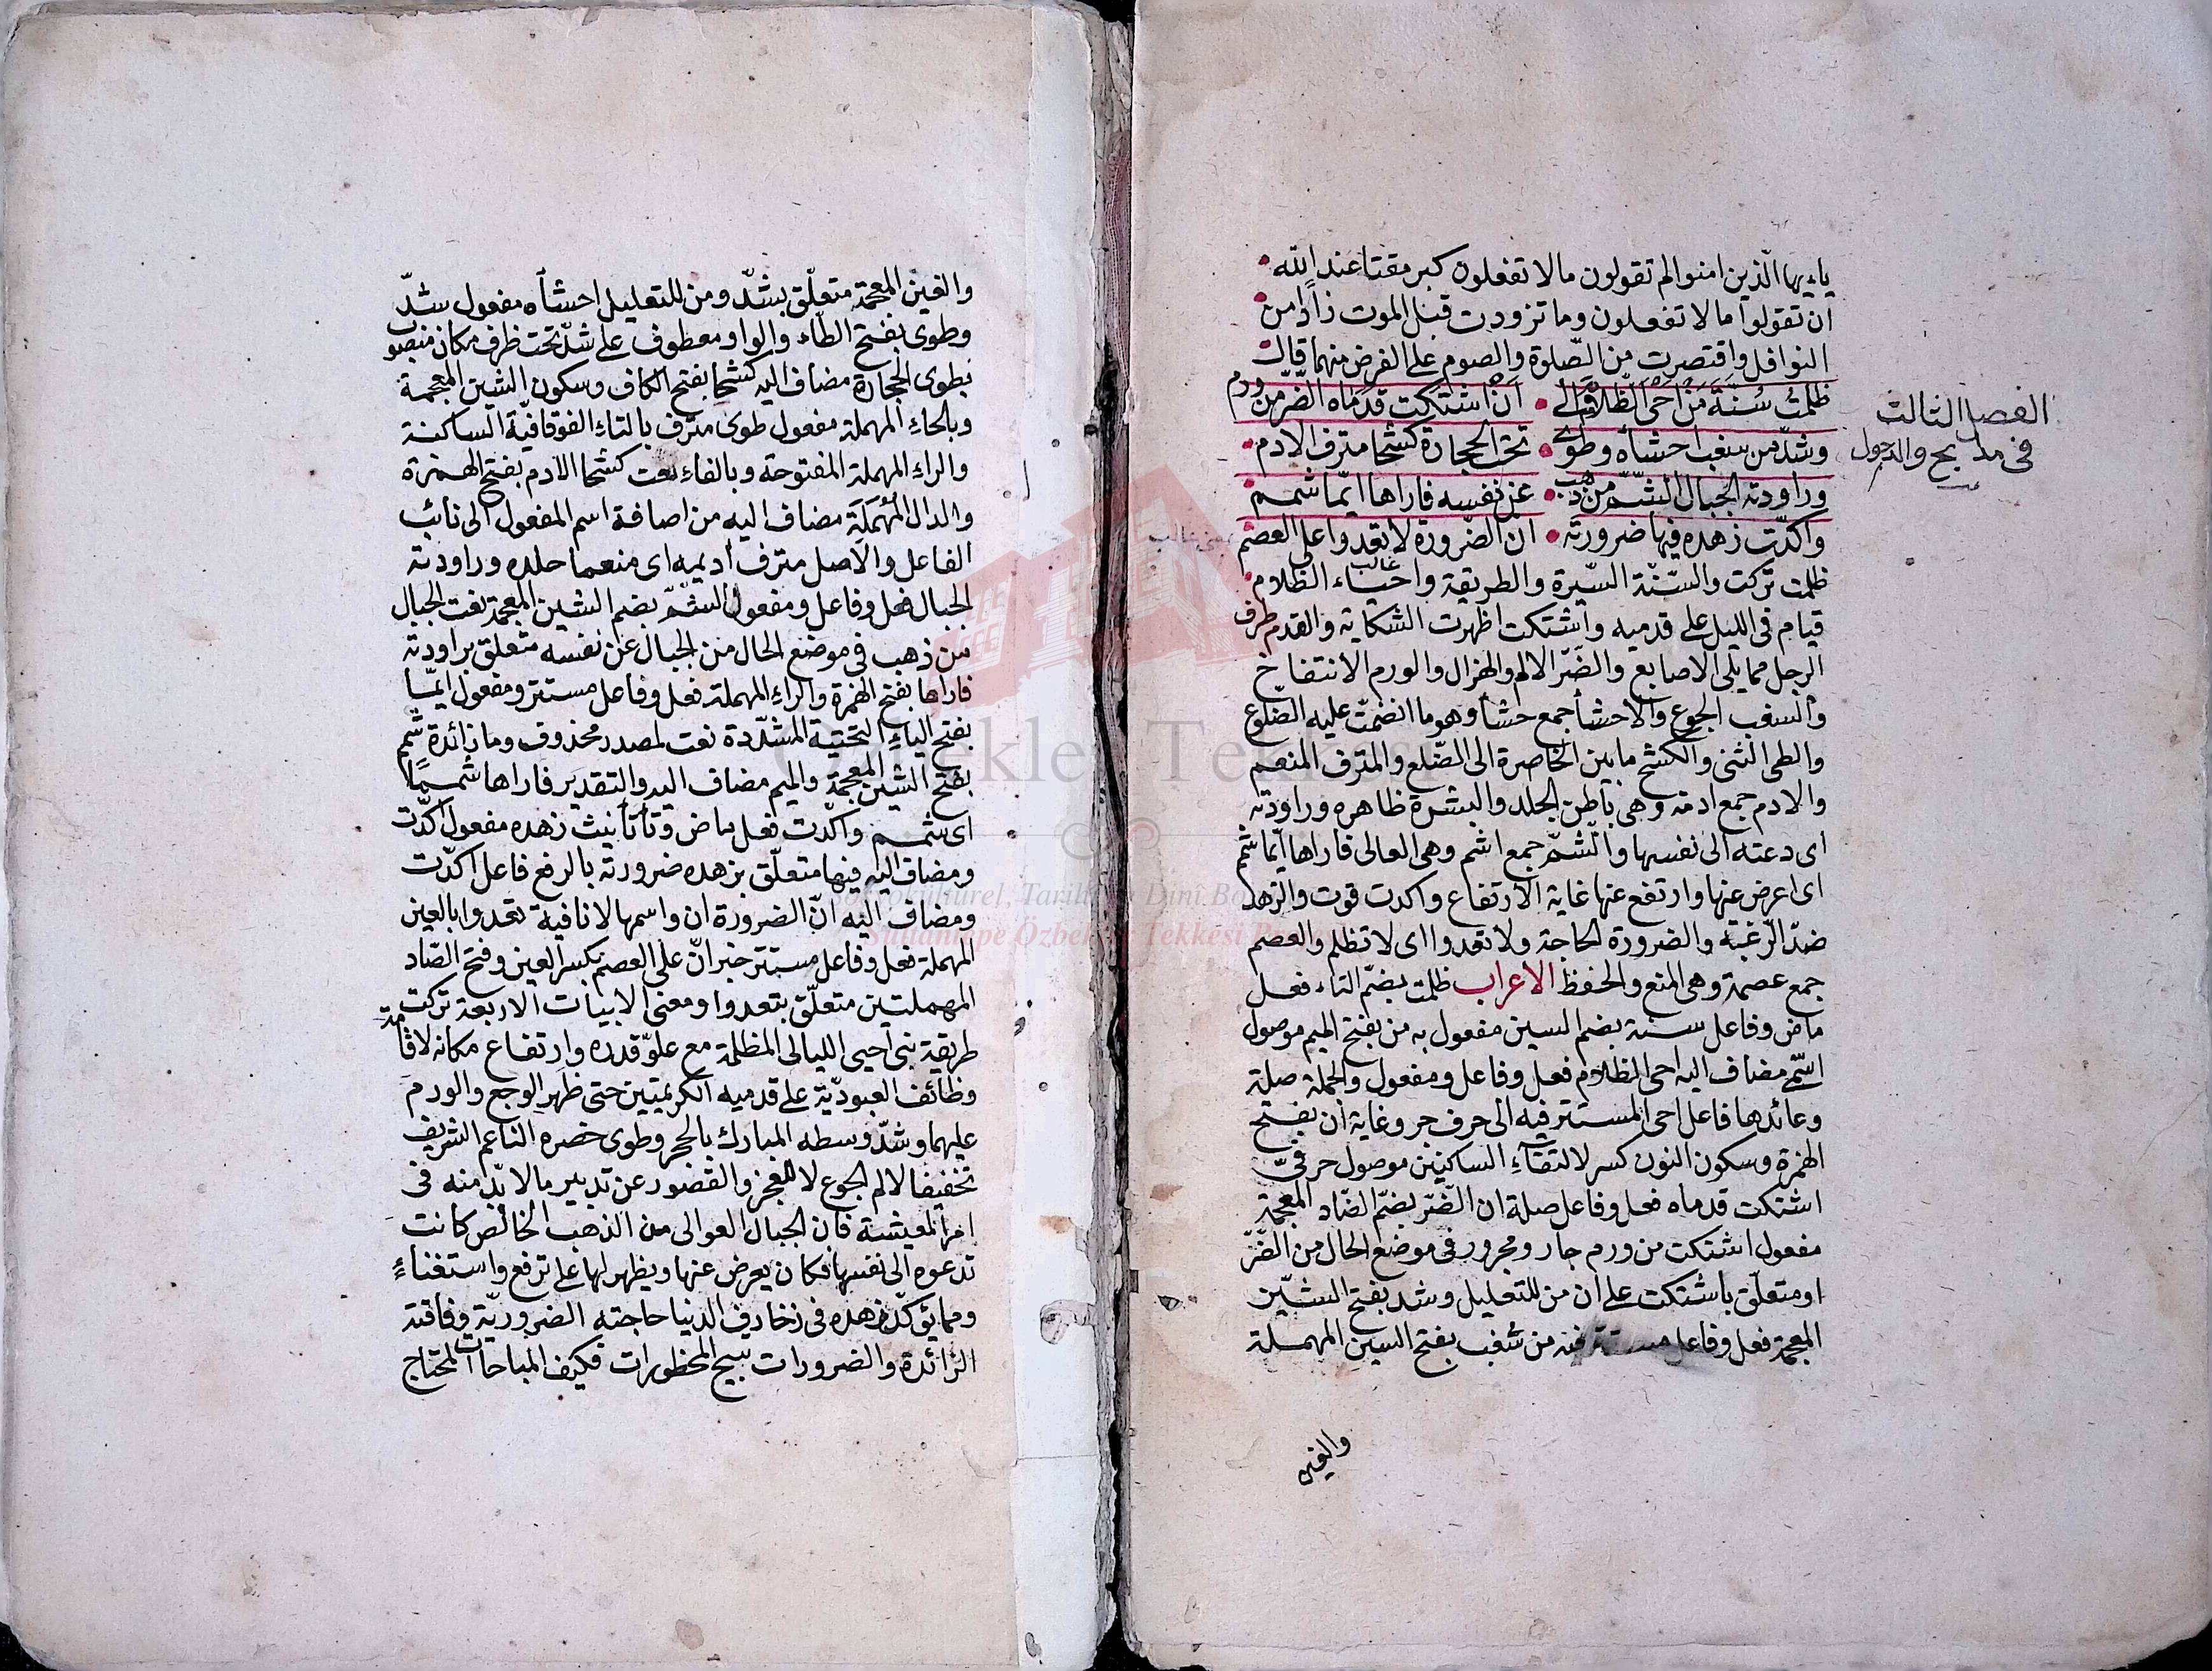 ياءيها الذين امنوا لم تقولون مالا تفعلون كبر مقتا عند الله
ان تقولوا مالا تفعلون وما تزودت قبل الموت زادا من
النوافل واقتصرت من الصّلوة والصوم على الفرض منهما قال
ظلمتُ سُنَّةَ مَنْ احْيَ الظّلامَ الى ان اشتكت قدماه الضّرّ من ورم
وشدّ من سغب احشاه وطوى تحت الحجارة كشحا مترف الادم
وراودته الجبال الشمّ من ذهب عن نفسه فاراها ايّما شمم
واكدّت زهده فيها ضرورته ان الضّرورة لا تعدوا على العصم
ظلمت تركت والسّنّة السّيرة والطريقة واحياء الظلام
قيام فى الليل على قدميه واشتكت اظهرت الشكاية والقدم طرف
الرجل مما يلى الاصابع والضّرّ الالم والهزال والورم الانتفاخ
والسغب الجوع والاحشأ جمع حشأ وهو ما انضمّت عليه الضّلوع
والطى الثنى والكشح مابين الخاصرة الى الضّلع والمترف المنعم
والادم جمع ادمة وهى باطن الجلد والبشرة ظاهره وراودته
اى دعته الى نفسها والشّمّ جمع اشم وهى العالى فاراها ايّما شمم
اى اعرض عنها وارتفع عنها غاية الارتفاع واكدت قوت والزهد
ضدّ الرّغبة والضرورة الحاجة ولا تعدوا اى لا تظلم والعصم
جمع عصمة وهى المنع والحفظ الاعراب ظلمت بضمّ التاء فعل
ماض وفاعل سنة بضم السين مفعول به من بفتح الميم موصول
اسمّى مضاف اليه احى الظلام فعل وفاعل ومفعول والجملة صلة
وعائدها فاعل احى المستتر فيه الى حرف جر وغاية ان بفتح
الهمزة وسكون النون كسر لالتقآء الساكنين موصول حرفىّ
اشتكت قدماه فعل وفاعل صلة ان الضّرّ بضمّ الضّاد المعجمة
مفعول اشتكت من ورم جار ومجرور فى موضع الحال من الضّرّ
او متعلّق باشتكت على ان من للتعليل وشد بفتح الشّين
المعجمة فعل وفاعل مستتر فيه من سغب بفتح السين المهملة
والغين
الفصل الثالث
فى مدايح والرسول
والغين المعجمة متعلّق بشدّ ومن للتعليل احشأه مفعول شدّ
وطوى بفتح الطّاء والواو معطوف على شدّ تحت ظرف مكان منصوب
بطوى الحجارة مضاف اليه كشحا بفتح الكاف وسكون الشين المعجمة
وبالحاء المهملة مفعول طوى مترف بالتاء الفوقافيّة الساكنة
والراء المهملة المفتوحة وبالفاء نعت كشحا الادم بفتح الهمزة
والدال المُهمَلَة مضاف اليه من اضافة اسم المفعول الى نائب
الفاعل والاصل مترف أديمه اى منعما جلده وراودته
الجبال فعل وفاعل ومفعول الشمّ بضم الشين المعجمة نعت الجبال
من ذهب فى موضع الحال من الجبال عن نفسه متعلق براودته
فاراها بفتح الهمزة والراء المهملة فعل وفاعل مستتر ومفعول ايّما
بفتح الياء التحتية المشدّدة نعت لمصدر محذوف وما زائدة شمم
بفتح الشين المعجمة والميم مضاف اليه والتقدير فاراها شمما
اى شمم واكدت فعل ماض وتأ تأنيث زهده مفعول اكدّت
ومضاف اليه فيها متعلّق بزهده ضرورته بالرفع فاعل اكدّت
ومضاف اليه انّ الضرورة ان واسمها لا نافية تعدوا بالعين
المهملة فعل وفاعل مستتر خبر انّ على العصم بكسر العين وفتح الصّاد
المهملتين متعلّق بتعدوا ومعنى الابيات الاربعة تركت
طريقة نبى احيى الليالى المظلمة مع علوّ قدره وارتفاع مكانه لاقامة
وظائف العبوديّة على قدميه الكريمتين حتى ظهر الوجع والورم
عليهما وشدّ وسطه المبارك بالحجر وطوى خصره الناعم الشريف
تخفيفا لالم الجوع لا للعجز والقصور عن تدبير مالا بدّ منه فى
امر المعيشة فان الجبال العوالى من الذهب الخالص كانت
تدعوه الى نفسها فكان يعرض عنها ويظهر لها على ترفع واستغناء
ومما يؤكّد زهده فى زخارف الدنيا حاجته الضروريّة وفاقته
الزائدة والضرورات تبيح المحظورات فكيف المباحات المحتاج
Tekkesi